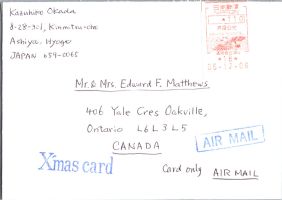 Kazuhiro Okada
8-28-301, Kinmitsu-cho
Ashiya, Hyogo
JAPAN 659-0065
日本郵便
06.12.06
Mr. & Mrs. Edward F. Matthews
406 Yale Cres Oakville,
Ontario L6L 3L5
CANADA
AIR MAIL
X'mas card
Card only AIR MAIL